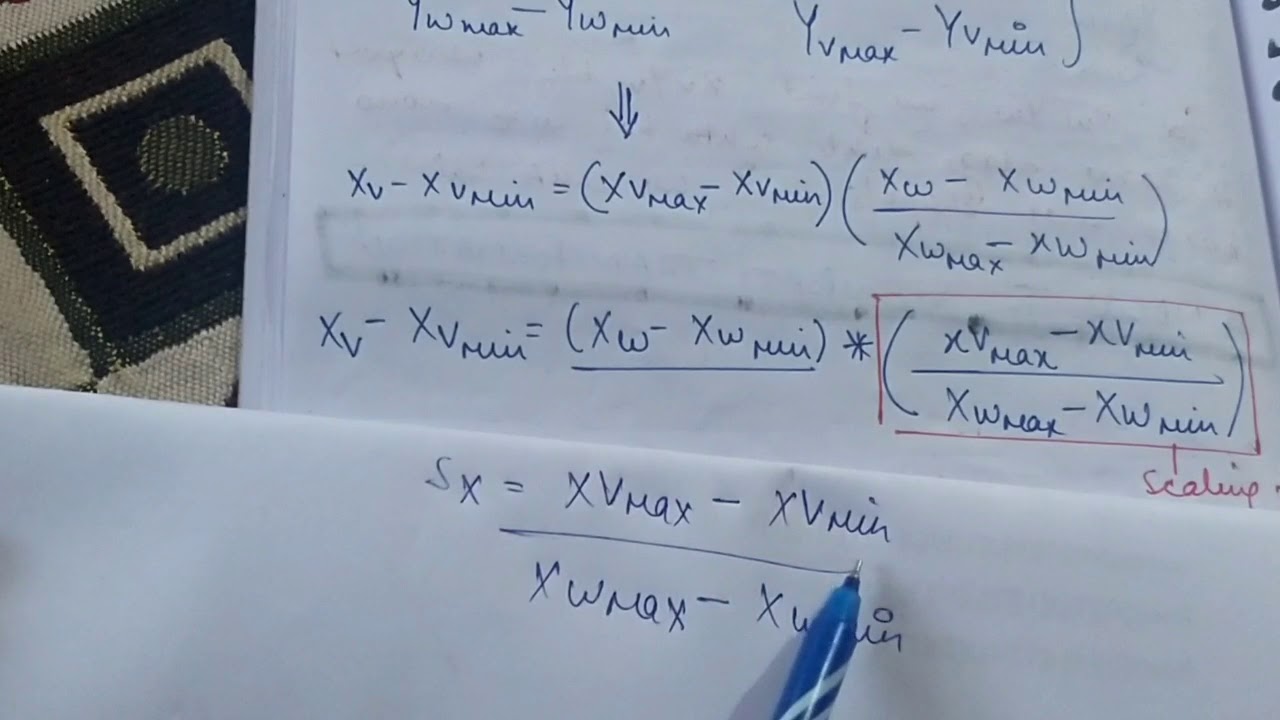 Ywmax - Ywmin Yvmax - Yvmin )
⇓
Xv - Xvmin = (Xvmax - Xvmin) ( Xw - Xwmin / Xwmax - Xwmin )
Xv - Xvmin = (Xw - Xwmin) * ( Xvmax - Xvmin / Xwmax - Xwmin )
Scaling
Sx = Xvmax - Xvmin
Xwmax - Xwmin